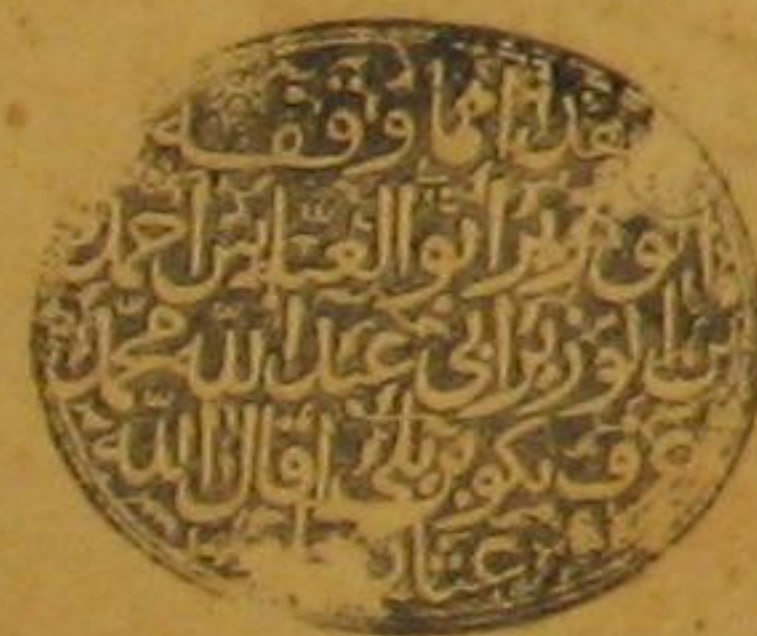 هذا مما وقفه
الوزير أبو العباس أحمد
ابن الوزير أبي عبد الله محمد
عرف بكوبريلي أقال الله
عثار